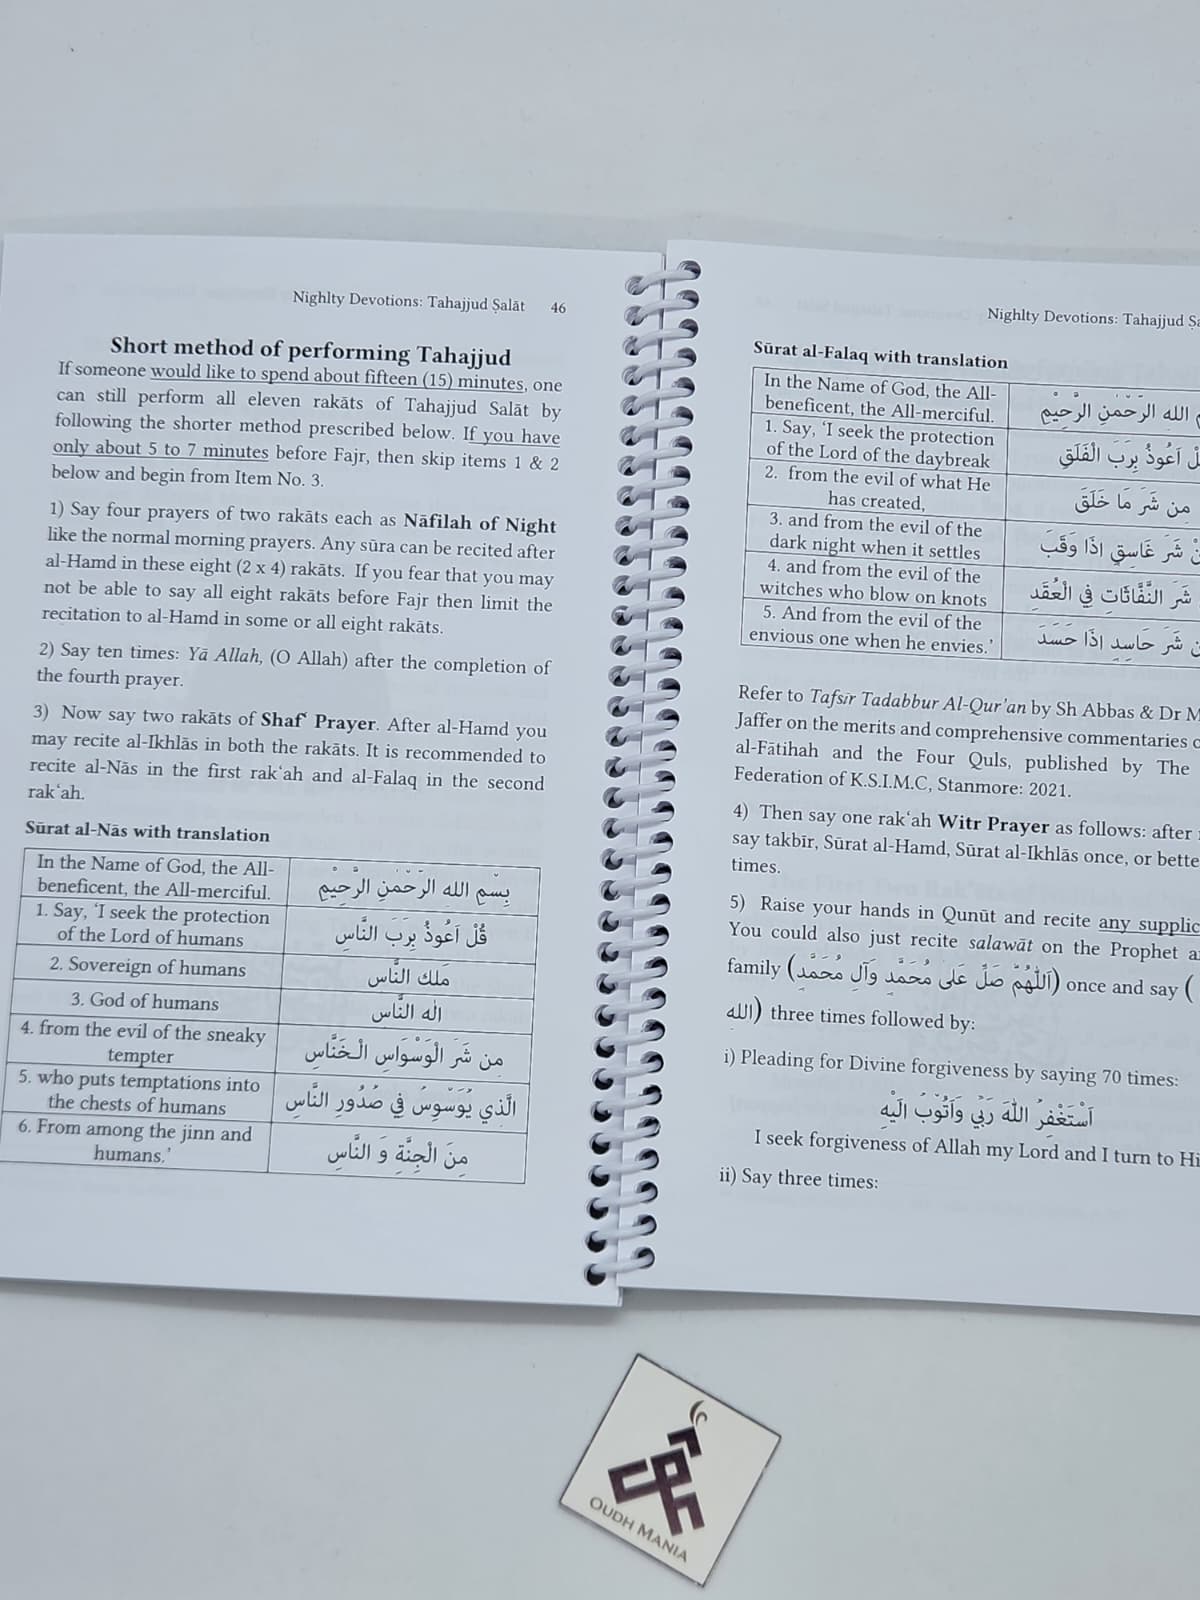 Nighlty Devotions: Tahajjud Ṣalāt 46
Short method of performing Tahajjud
If someone would like to spend about fifteen (15) minutes, one
can still perform all eleven rakāts of Tahajjud Salāt by
following the shorter method prescribed below. If you have
only about 5 to 7 minutes before Fajr, then skip items 1 & 2
below and begin from Item No. 3.
1) Say four prayers of two rakāts each as Nāfilah of Night
like the normal morning prayers. Any sūra can be recited after
al-Hamd in these eight (2 x 4) rakāts. If you fear that you may
not be able to say all eight rakāts before Fajr then limit the
recitation to al-Hamd in some or all eight rakāts.
2) Say ten times: Yā Allah, (O Allah) after the completion of
the fourth prayer.
3) Now say two rakāts of Shafʿ Prayer. After al-Hamd you
may recite al-Ikhlās in both the rakāts. It is recommended to
recite al-Nās in the first rakʿah and al-Falaq in the second
rakʿah.
Sūrat al-Nās with translation
In the Name of God, the All-
beneficent, the All-merciful.
بِسْمِ الله الرَّحْمٰنِ الرَّحِيْمِ
1. Say, 'I seek the protection
of the Lord of humans
قُلْ اَعُوذُ بِرَبِّ النَّاسِ
2. Sovereign of humans
مَلِك النَّاسِ
3. God of humans
الٰه النَّاسِ
4. from the evil of the sneaky
tempter
مِن شَرِّ الْوَسْوَاسِ الْخَنَّاسِ
5. who puts temptations into
the chests of humans
الَّذِي يُوَسْوِسُ فِي صُدُورِ النَّاسِ
6. From among the jinn and
humans.'
مِنَ الْجِنَّةِ وَ النَّاسِ
Nighlty Devotions: Tahajjud
Sūrat al-Falaq with translation
In the Name of God, the All-
beneficent, the All-merciful.
الله الرَّحْمٰنِ الرَّحِيْمِ
1. Say, 'I seek the protection
of the Lord of the daybreak
اَعُوذُ بِرَبِّ الْفَلَقِ
2. from the evil of what He
has created,
مِن شَرِّ مَا خَلَقَ
3. and from the evil of the
dark night when it settles
شَرِّ غَاسِقٍ اِذَا وَقَبَ
4. and from the evil of the
witches who blow on knots
شَرِّ النَّفَّاثَاتِ فِي الْعُقَدِ
5. And from the evil of the
envious one when he envies.'
شَرِّ حَاسِدٍ اِذَا حَسَدَ
Refer to Tafsīr Tadabbur Al-Qur'an by Sh Abbas & Dr
Jaffer on the merits and comprehensive commentaries
al-Fātihah and the Four Quls, published by The
Federation of K.S.I.M.C, Stanmore: 2021.
4) Then say one rakʿah Witr Prayer as follows: after
say takbīr, Sūrat al-Hamd, Sūrat al-Ikhlās once, or
times.
5) Raise your hands in Qunūt and recite any
You could also just recite salawāt on the Prophet
family (اَللّٰهُمَّ صَلِّ عَلَى مُحَمَّدٍ وَآلِ مُحَمَّدٍ) once and say (
الله) three times followed by:
i) Pleading for Divine forgiveness by saying 70 times:
اَسْتَغْفِرُ اللهَ رَبِّي وَاَتُوْبُ اِلَيْهِ
I seek forgiveness of Allah my Lord and I turn to
ii) Say three times:
OUDH MANIA